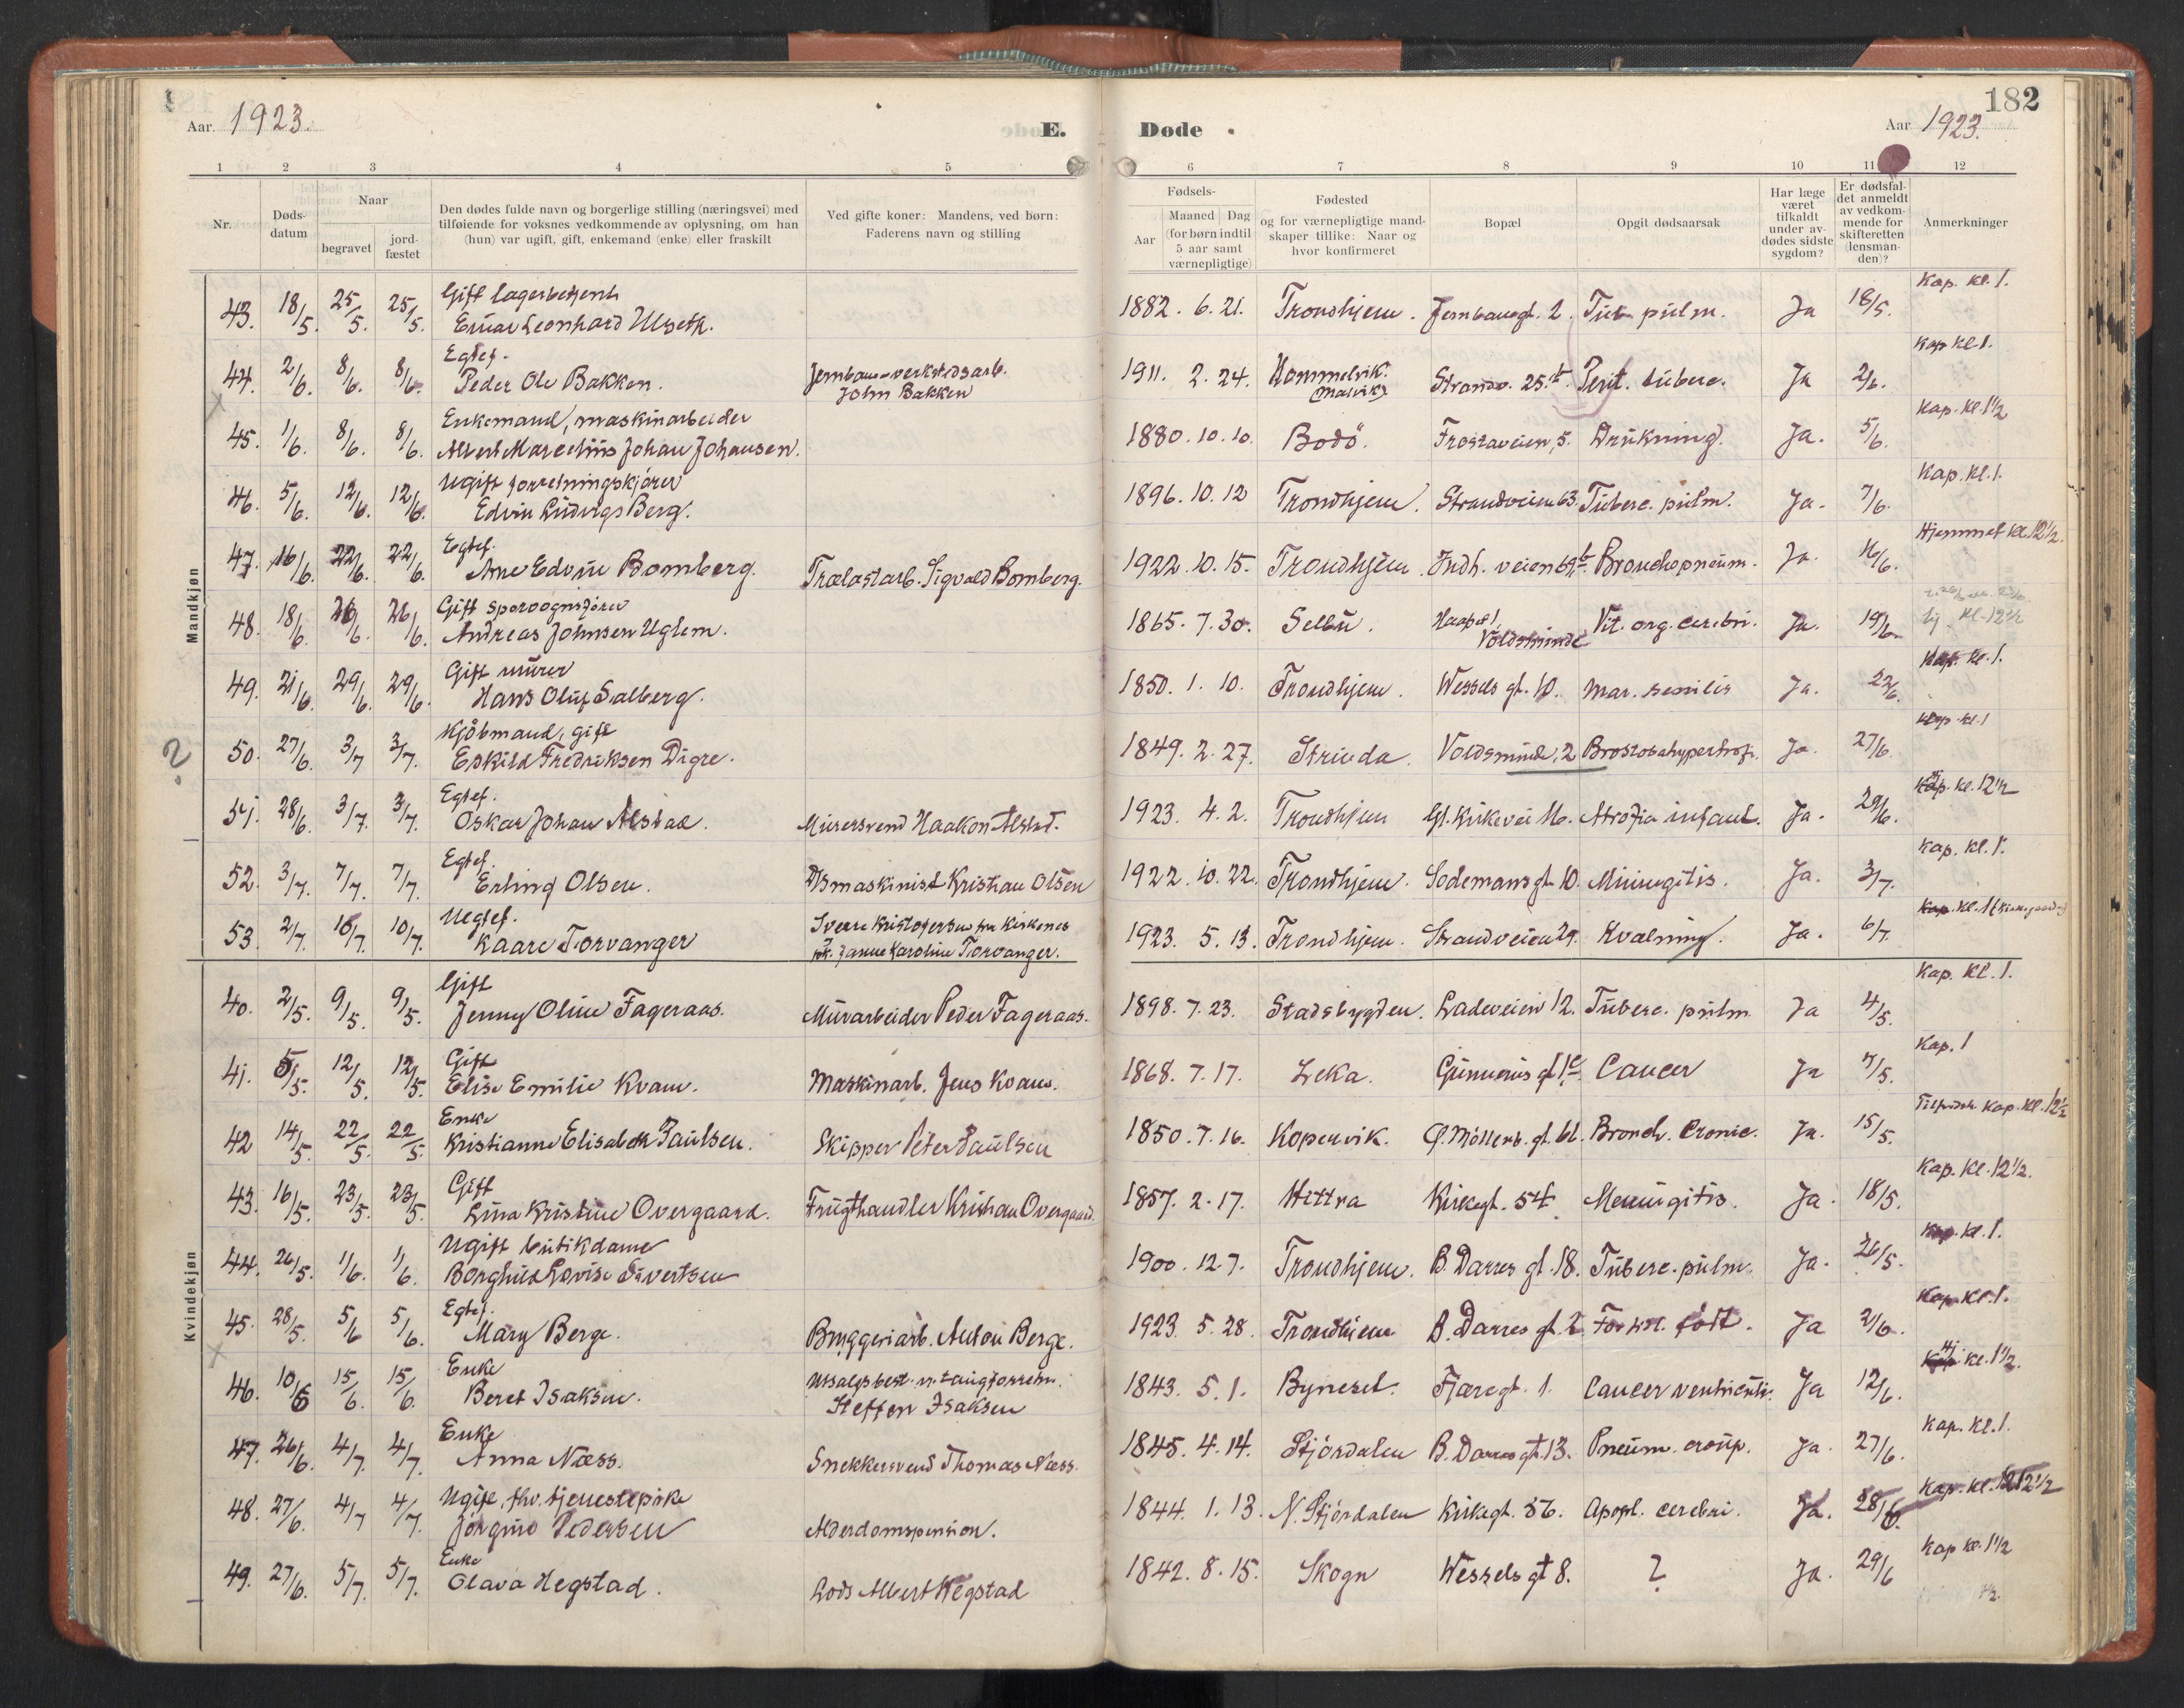 182
Aar 1923. E. Døde Aar 1923.
1 2 3 4 5 6 7 8 9 10 11 12
Nr.
Døds-
datum
Naar
begravet
jord-
fæstet
Den dødes fulde navn og borgerlige stilling (næringsvei) med
tilføiende for voksnes vedkommende av oplysning, om han
(hun) var ugift, gift, enkemand (enke) eller fraskilt
Ved gifte koner: Mandens, ved børn:
Faderens navn og stilling
Fødsels-
Aar
Maaned Dag
(for børn indtil
5 aar samt
værnepligtige)
Fødested
og for værnepligtige mand-
skaper tillike: Naar og
hvor konfirmeret
Bopæl
Opgit dødsaarsak
Har læge
været
tilkaldt
under av-
dødes sidste
sygdom?
Er dødsfal-
det anmeldt
av vedkom-
mende for
skifteretten
(lensman-
den)?
Anmerkninger
Mandkjøn
Gift Kap. kl. 1.
43. 18/5. 25/5. 25/5. Einar Leonhard Ulseth. 1882. 6. 21. Trondhjem. Jernbanegt. 2. Tub. pulm. Ja 18/5.
Egtef. Jernbaneverkstedsarb. Kap kl. 1.
44. 2/6. 8/6. 8/6. Peder Ole Bakken. John Bakken 1911. 2. 24. Hommelvik. (Malvik) Strandv. 25 b. Perit. tuberc. Ja 2/6.
Enkemand, maskinarbeider Kap. kl. 1 1/2
45. 1/6. 8/6. 8/6. Albert Marcelius Johan Johansen. 1880. 10. 10. Bodö. Frostaveien, 5. Drukning. Ja. 5/6.
Ugift forretningskjører Kap. kl. 1.
46. 5/6. 12/6. 12/6. Edvin Ludvigs Berg. 1896. 10. 12 Trondhjem. Strandveien 63. Tuberc. pulm. Ja. 7/6.
Egtef. Hjemmet kl. 12 1/2.
47. 16/6. 22/6. 22/6. Arne Edvin Bomberg. Trælastarb. Sigvald Bomberg. 1922. 10. 15. Trondhjem. Indh. veien 69 b. Bronchopneum. Ja. 16/6.
Gift sporvognsfører kl. 12 1/2
48. 18/6. 26/6. 26/6. Andreas Johnsen Uglem. 1865. 7. 30. Selbu. Haapet, Voldsminde Vit. org. cerebri. Ja. 19/6.
Gift murer Kap. kl. 1.
49. 21/6. 29/6. 29/6. Hans Oluf Salberg. 1850. 1. 10. Trondhjem. Wessels gt. 10. Mar. senilis Ja. 22/6.
Kjøbmand, gift Kap. kl. 1
? 50. 27/6. 3/7 3/7. Eskild Fredriksen Digre. 1849. 2. 27. Strinda. Voldsminde, 2 Ja. 27/6.
Egtef. kl. 12 1/2
51. 28/6. 3/7. 3/7. Oskar Johan Alstad. Murersvend Haakon Alstad. 1923. 4. 2. Trondhjem Gl. Kirkevei 16. Atrofia infant. Ja. 29/6.
Egtef. Kap. kl. 1.
52. 3/7. 7/7. 7/7. Erling Olsen. D/Smaskinist Kristian Olsen 1922. 10. 22. Trondhjem. Sodemansgt. 10. Miningitis. Ja. 3/7.
Uegtef. Sverre Kristofersen fra Kirkenes
53. 2/7. 10/7. 10/7. Kaare Torvanger Janne Karoline Torvanger. 1923. 5. 13. Trondhjem. Strandveien 29. Kvælning. Ja. 6/7.
Kvindekjøn
Gift Kap. kl. 1.
40. 2/5. 9/5. 9/5. Jenny Oline Fageraas. Murarbeider Peder Fageraas. 1898. 7. 23. Stadsbygden. Ladeveien 12. Tuberc. pulm. Ja 4/5.
Gift Kap. 1
41. 5/5. 12/5. 12/5. Elise Emilie Kvam. Maskinarb. Jens Kvam. 1868. 7. 17. Leka. Gunnerus gt 1 c. Cancer Ja 7/5.
Enke Kap. kl. 12 1/2
42 14/5. 22/5. 22/5. Kristianne Elisabeth Paulsen. Skipper Peter Paulsen 1850. 7. 16. Kopervik. Møllenb. gt. 61. Bronch. Cronic. Ja. 15/5.
Gift Kap. kl. 12 1/2.
43. 16/5. 23/5. 23/5. Lina Kristine Overgaard. Frugthandler Kristian Overgaard. 1857. 2. 17. Hittra Kirkegt. 54. Meningitis. Ja. 18/5.
Ugift butikdame Kap. kl. 1.
44. 26/5. 1/6. 1/6. Borghild Lovise Sivertsen 1900. 12 7. Trondhjem. B. Darres gt. 18. Tuberc. pulm. Ja. 26/5.
Egtef. Kap. kl. 1.
45. 28/5. 5/6 5/6. Mary Berge. Bryggeriarb. Anton Berge. 1923. 5. 28. Trondhjem. B. Darres gt. 2 født. Ja 2/6.
Enke Hj. kl. 1 1/2.
46. 10/6 15/6. 15/6. Beret Isaksen. Steffen Isaksen 1843. 5. 1. Byneset. Fjæregt. 1. Cancer ventriculi. Ja 12/6.
Enke Kap. kl. 1.
47. 26/6. 4/7. 4/7. Anna Næss. Snekkersvend Thomas Næss. 1845. 4. 14. Stjórdalen B. Darres gt. 13. Pneum. croup. Ja. 27/6.
Ugift, fhv. tjenestepike Kap. kl. 12 1/2
48. 27/6. 4/7 4/7. Jørgine Pedersen Alderdomspension. 1844. 1. 13. N. Stjórdalen Kirkegt. 56. Apopl. cerebri. Ja. 28/6.
Enke Kap kl. 1 1/2
49. 27/6. 5/7. 5/7. Olava Hegstad. Lods Albert Hegstad 1842. 8. 15. Skogn Wessels gt 8. ? Ja. 29/6